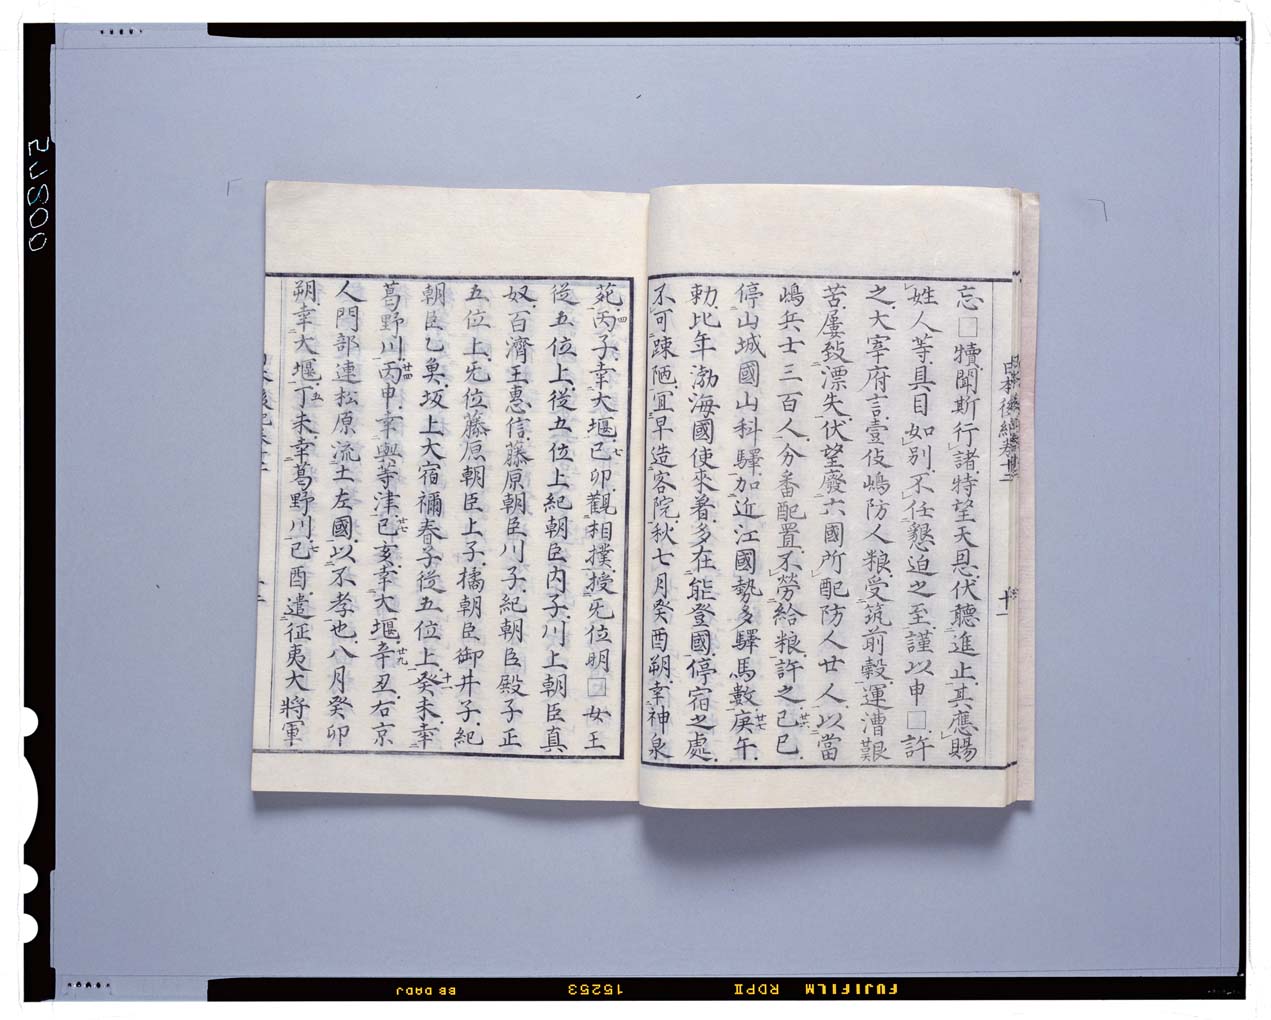 忘□犢聞斯行諸特望天恩伏聽進止其應賜
姓人等具目如別不任懇迫之至謹以申□許
之大宰府言壹伎嶋防人粮受筑前穀運漕艱
苦屢致漂失伏望廢六國所配防人廿人以當
嶋兵士三百人分番配置不勞給粮許之己巳廿六
停山城國山科驛加近江國勢多驛馬數庚午廿七
勅比年渤海國使來著多在能登國停宿之處
不可踈陋宜早造客院秋七月癸酉朔幸神泉
苑丙子四幸大堰己卯七觀相撲授旡位明□女王
從五位上從五位上紀朝臣内子川上朝臣真
奴百濟王惠信藤原朝臣川子紀朝臣殿子正
五位上旡位藤原朝臣上子橘朝臣御井子紀
朝臣乙魚坂上大宿禰春子從五位上癸未十一幸
葛野川丙申廿四幸與等津己亥廿七幸大堰辛丑廿九右京
人門部連松原流土左國以不孝也八月癸卯
朔幸大堰丁未五幸葛野川己酉七遣征夷大將軍
日本後紀卷十二
十一
FUJIFILM RDPⅡ
15253